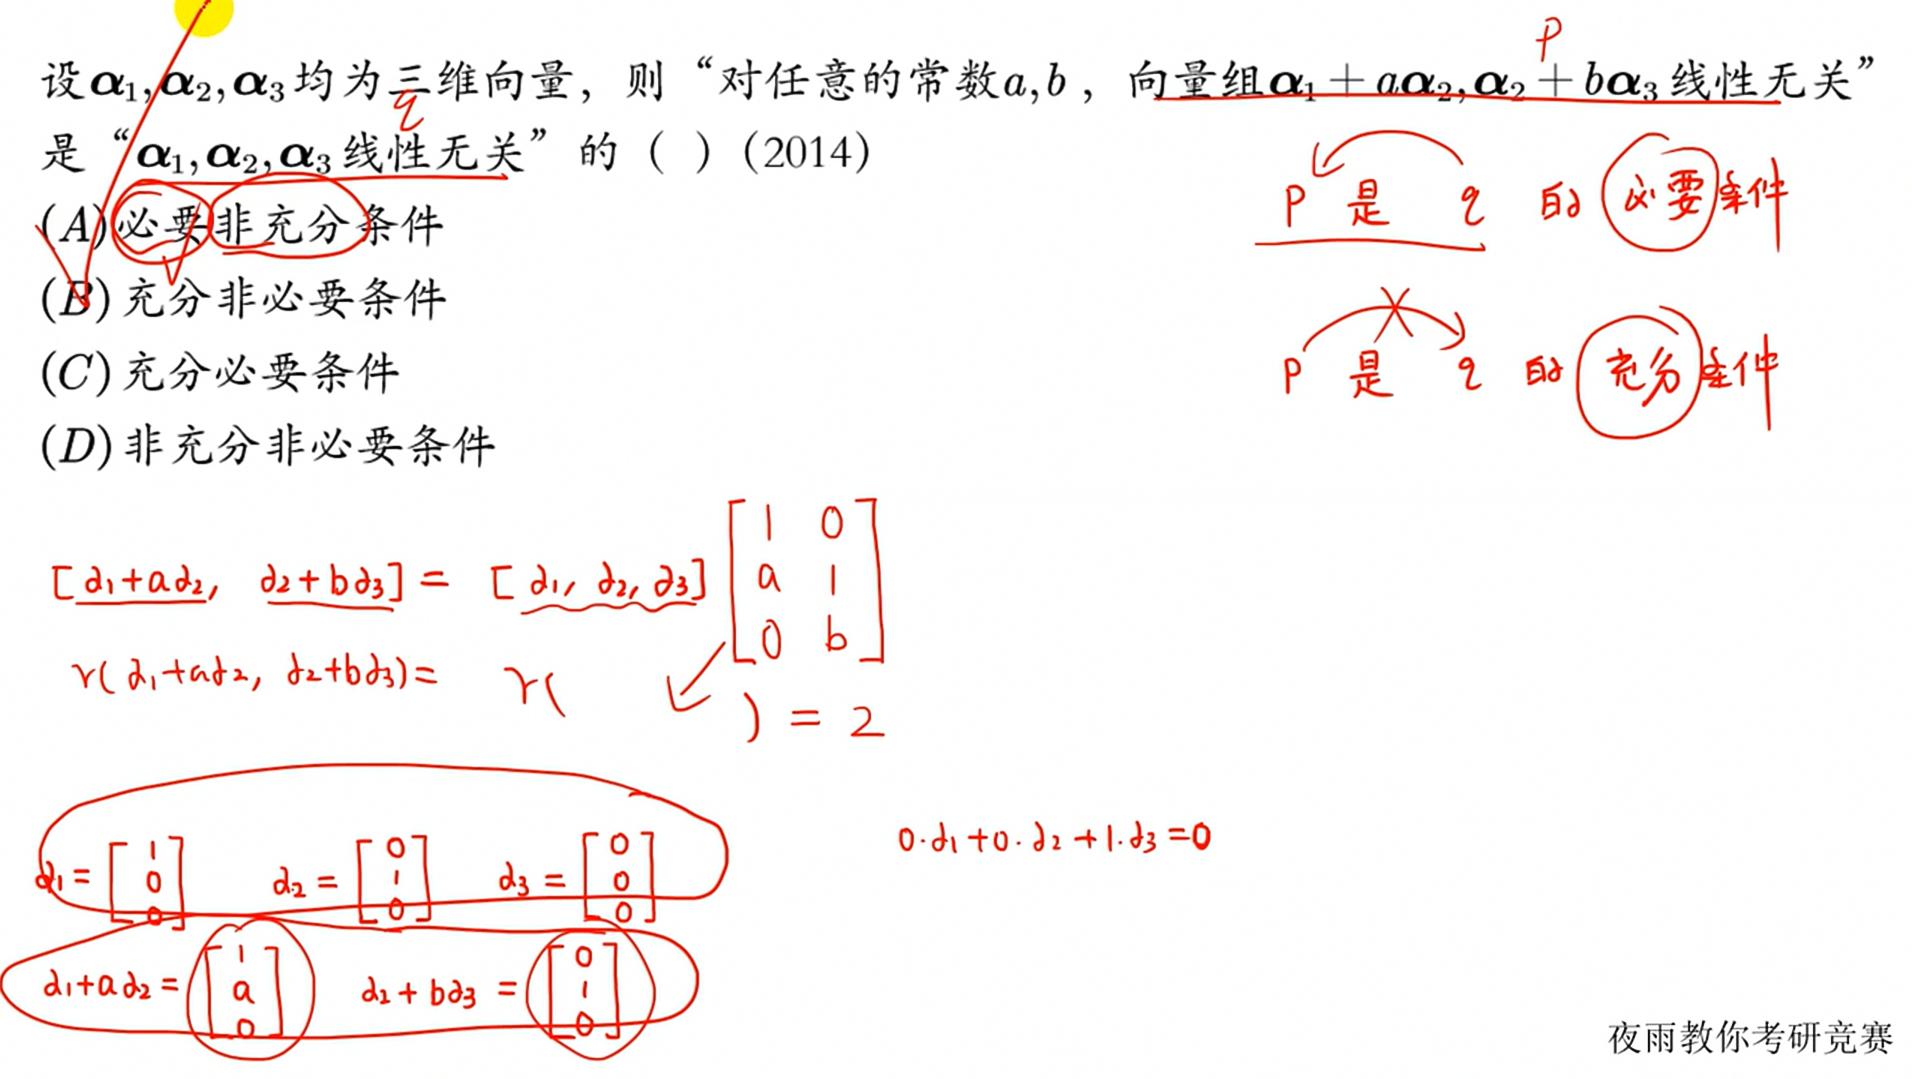 设α₁,α₂,α₃均为三维向量，则“对任意的常数a,b，向量组α₁+aα₂,α₂+bα₃线性无关”
是“α₁,α₂,α₃线性无关”的（ ）(2014)
(A)必要非充分条件
(B)充分非必要条件
(C)充分必要条件
(D)非充分非必要条件
P
q
P 是 q 的 必要条件
P 是 q 的 充分条件
[α₁+aα₂, α₂+bα₃] = [α₁, α₂, α₃] [1 0
a 1
0 b]
r(α₁+aα₂, α₂+bα₃) = r( ) = 2
α₁ = [1 0 0] α₂ = [0 1 0] α₃ = [0 0 0]
0·α₁+0·α₂+1·α₃=0
α₁+aα₂ = [1 a 0] α₂+bα₃ = [0 1 0]
夜雨教你考研竞赛